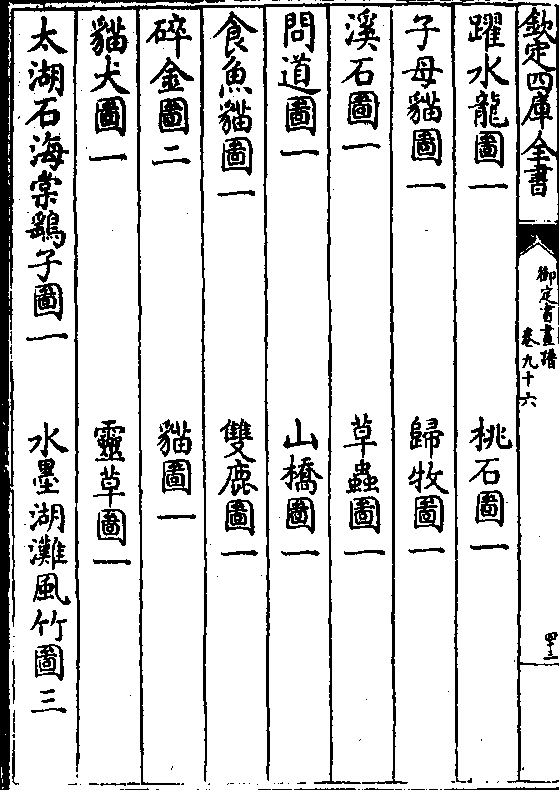 欽定四庫全書
御定書畫譜
卷九十六
四十三
躍水龍圖一 桃石圖一
子母貓圖一 歸牧圖一
溪石圖一 草蟲圖一
問道圖一 山橋圖一
食魚貓圖一 雙鹿圖一
碎金圖二 貓圖一
貓犬圖一 靈草圖一
太湖石海棠鷂子圖一 水墨湖灘風竹圖三